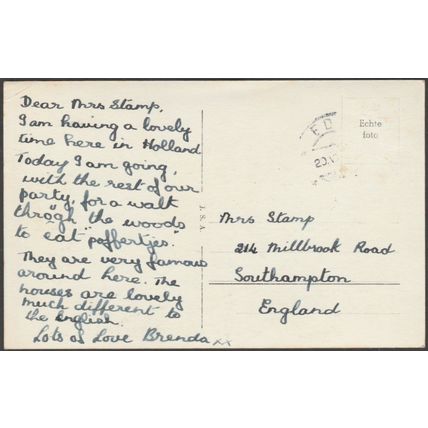 Dear Mrs Stamp,
I am having a lovely
time here in Holland
Today I am going,
with the rest of our
party, for a walk
throgh the woods
to eat "poffertjes.
They are very famous
around here. The
houses are lovely
much different to
the english.
Lots of Love Brenda xx
J.S.A.
ED
20.V
Echte
foto
Mrs Stamp
214 Millbrook Road
Southampton
England